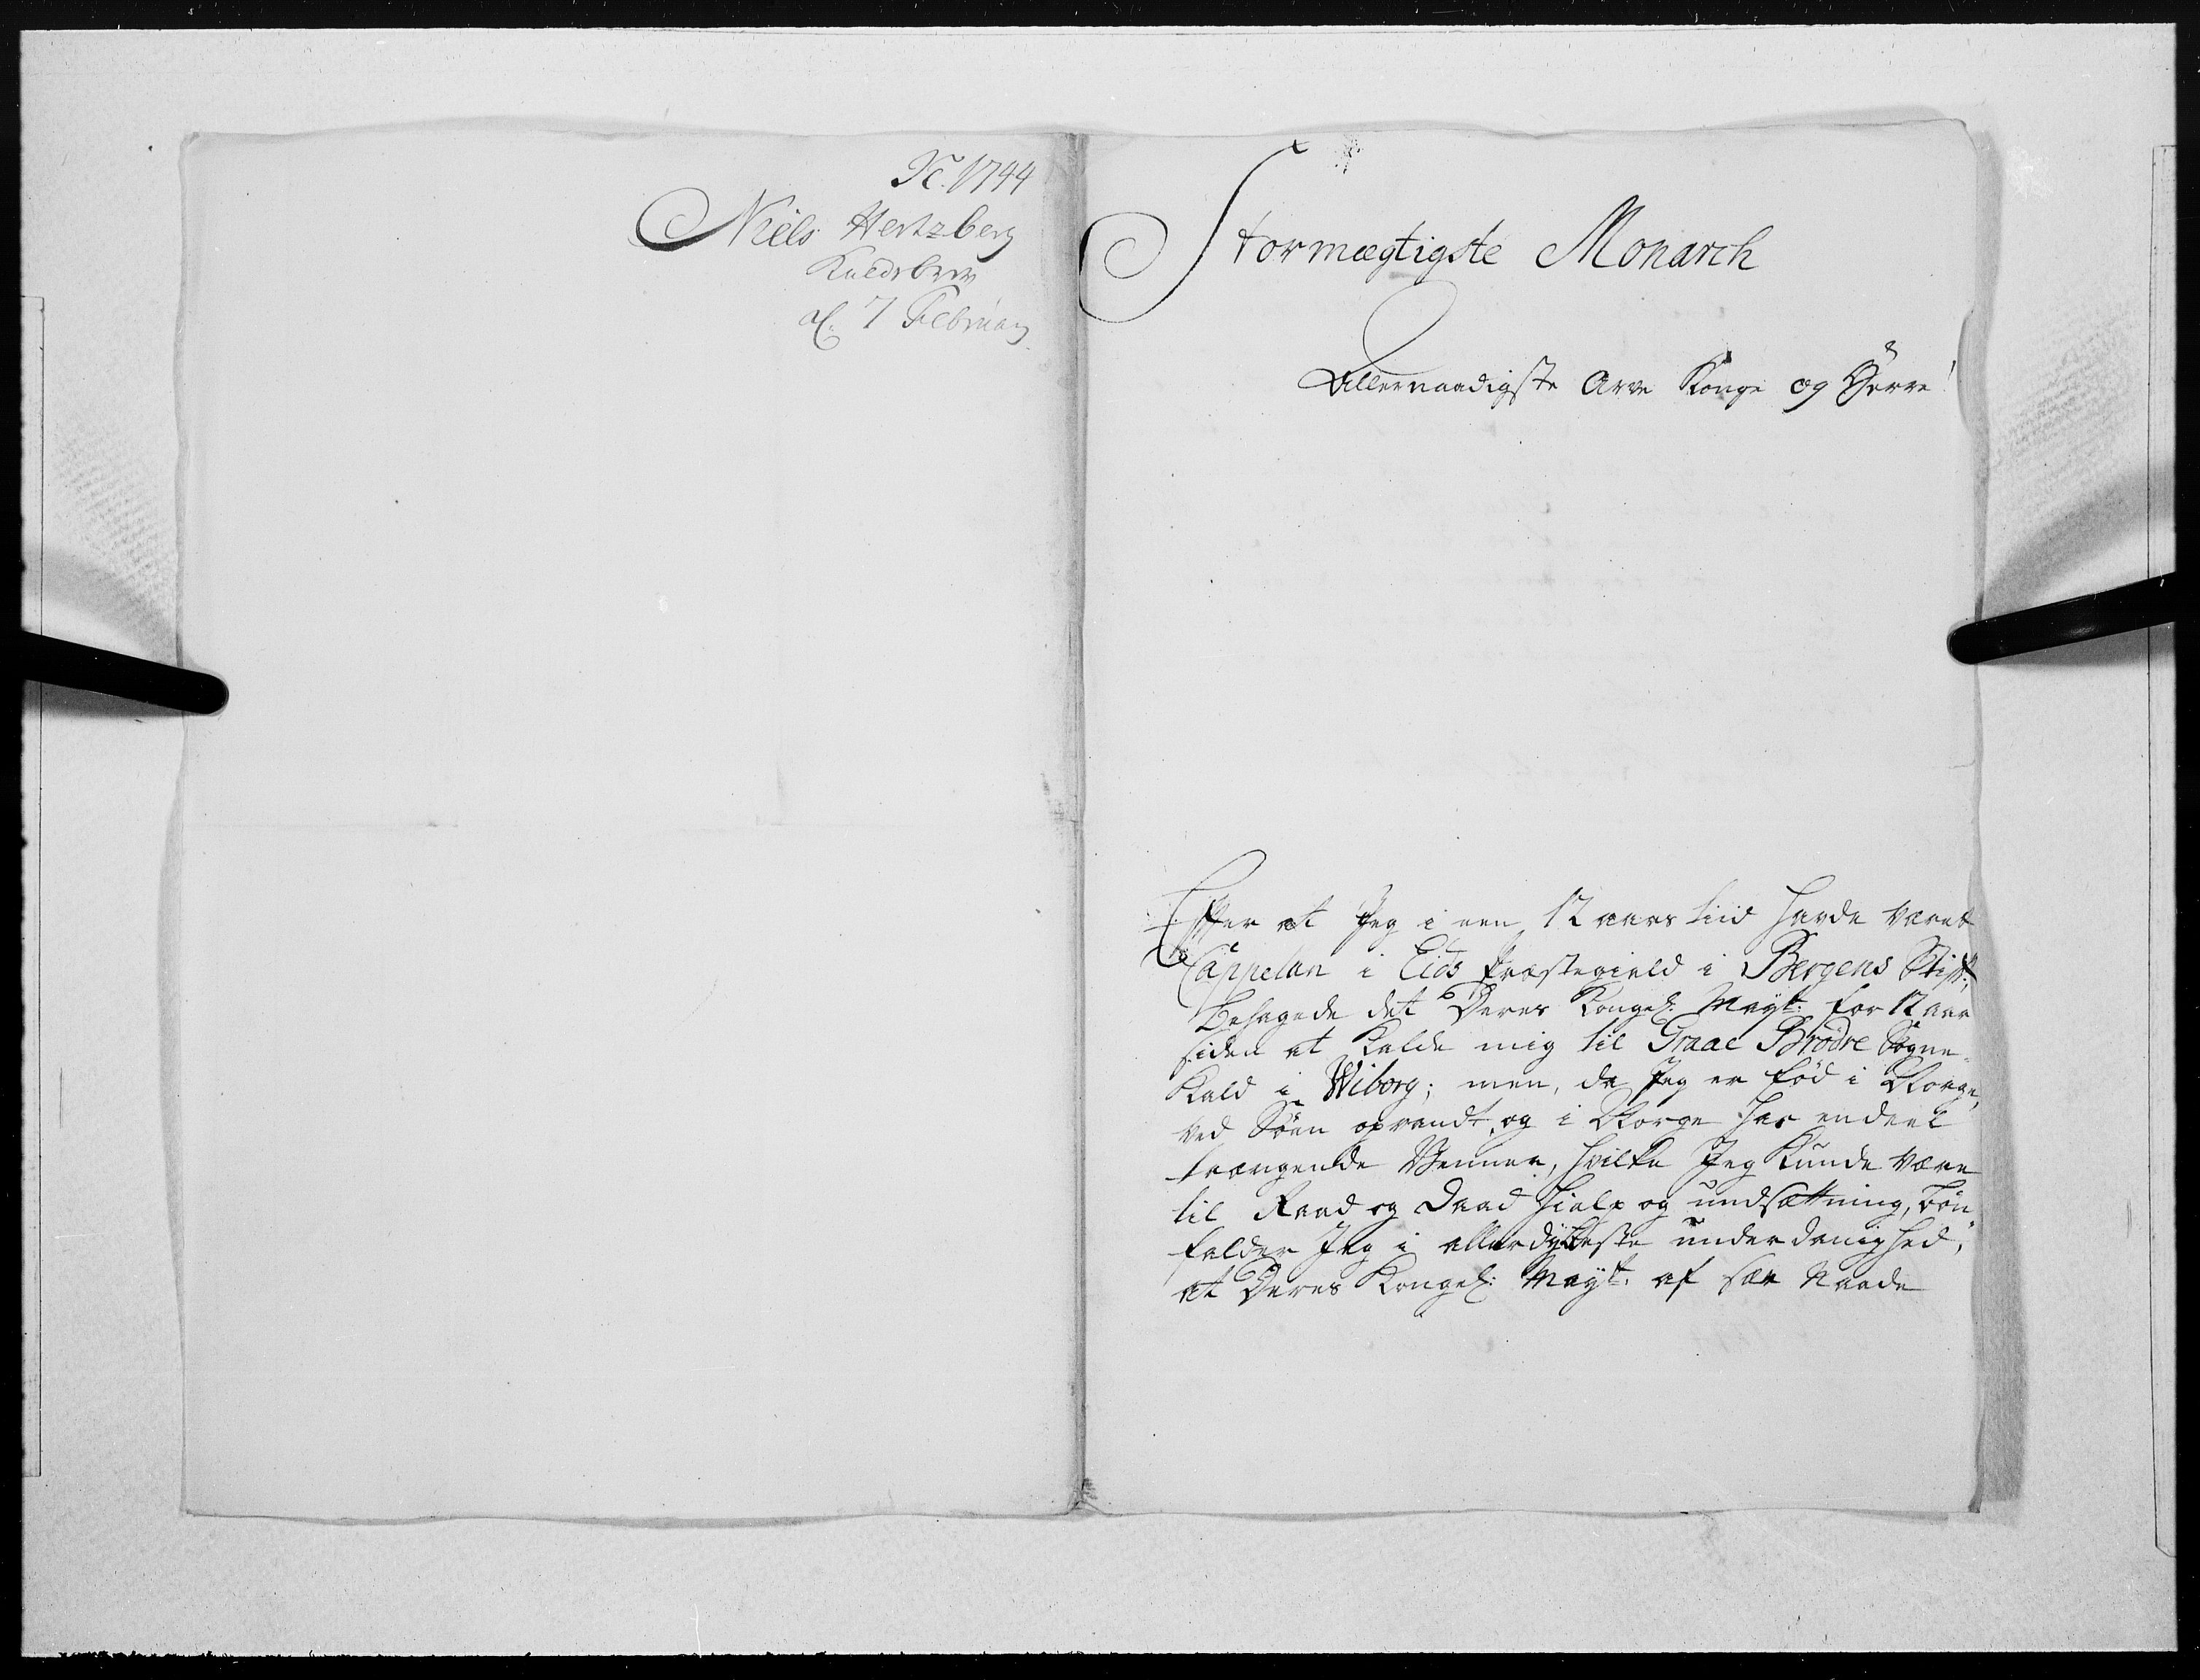 1744
Niels Hertzberg
Kaldsbrev
af 7 Februarj
Stormægtigste Monarch
Allernaadigste Arve Konge og Herre!
Efter at Jeg i een 12 aars tiid havde været
Cappelan i Eids Præstegield i Bergens Stift,
Behagede det Deres Kongel: Mayt: for 12 aar
siden at Kalde mig til Graae Brødre Sogne-
Kald i Wiborg; men, da Jeg er fød i Norge,
ved Søen opvandt, og i Norge har endeel
trængende Venner, hvilke Jeg Kunde være
til Raad og Daad Hielp og undsættning, bøn-
falder Jeg i allerdybeste underdanighed,
at Deres Kongel: Mayt: af sær Naade